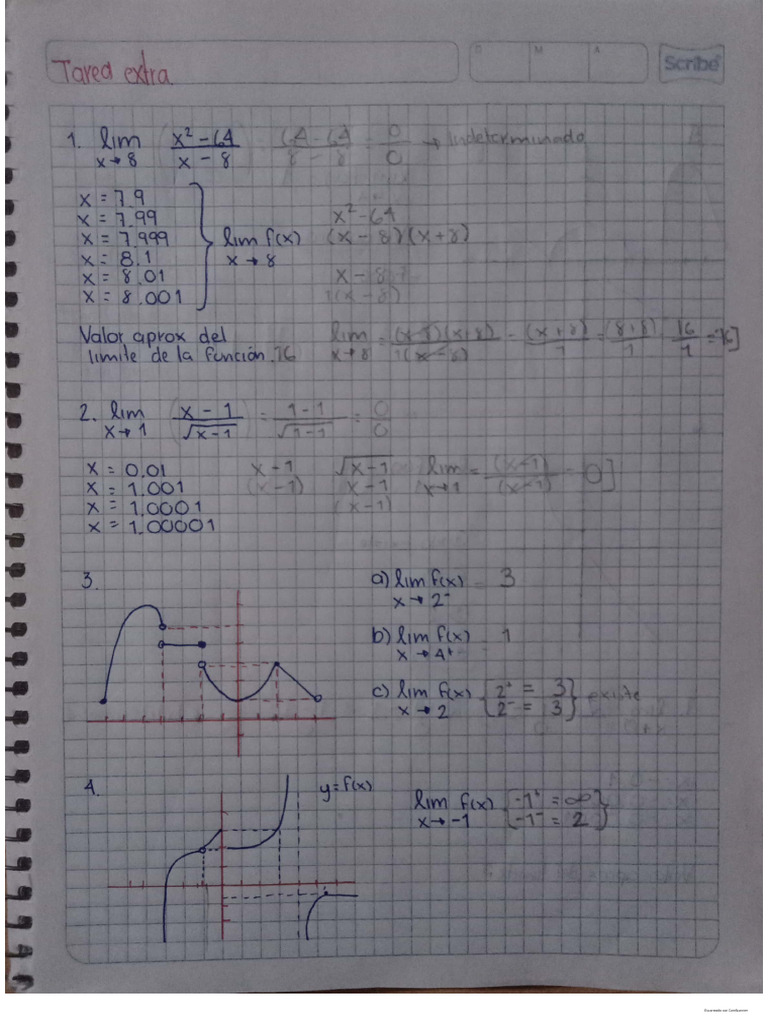 D M A
Scribe
Tarea extra
1. lim x→8 (x² - 64)/(x - 8) = (64 - 64)/(8 - 8) = 0/0 → Indeterminado
x = 7.9
x = 7.99
x = 7.999
x = 8.1
x = 8.01
x = 8.001
lim f(x)
x → 8
x² - 64
(x - 8)(x + 8)
x - 8
1(x - 8)
Valor aprox del
limite de la función 16
lim x→8 = (x - 8)(x + 8)/1(x - 8) = (x + 8)/1 = (8 + 8)/1 = 16/1 = 16]
2. lim x→1 (x - 1)/√(x - 1) = (1 - 1)/√(1 - 1) = 0/0
x = 0.01
x = 1.001
x = 1.0001
x = 1.00001
x - 1
(x - 1)
√x - 1
x - 1
(x - 1)
lim x→1 = (x - 1)/(x - 1) = 0]
3.
a) lim f(x) = 3
x → 2⁻
b) lim f(x) 1
x → 4⁺
c) lim f(x) { 2⁺ = 3
2⁻ = 3 } existe
x → 2
4.
y = f(x)
lim f(x) { -1⁺ = ∞
-1⁻ = 2 }
x → -1